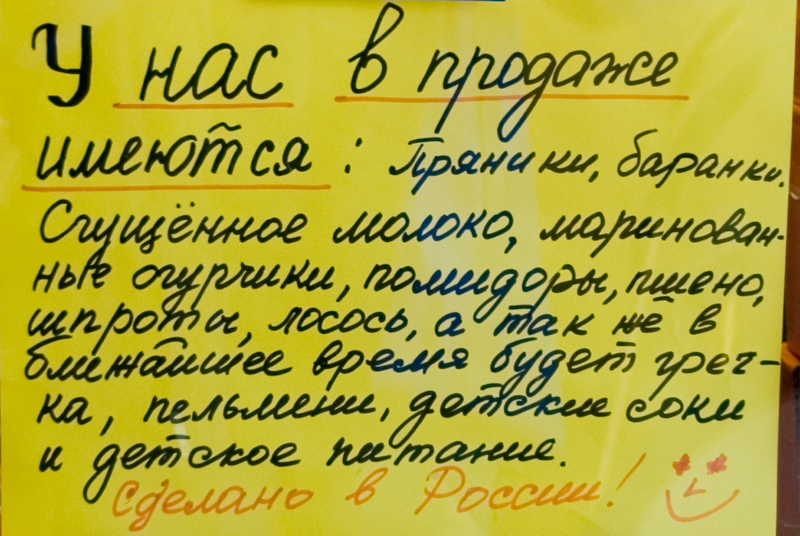 У нас в продаже
имеются: Пряники, баранки.
Сгущённое молоко, маринован-
ные огурчики, помидоры, пшено,
шпроты, лосось, а так же в
ближайшее время будет греч-
ка, пельмени, детские соки
и детское питание.
Сделано в России!